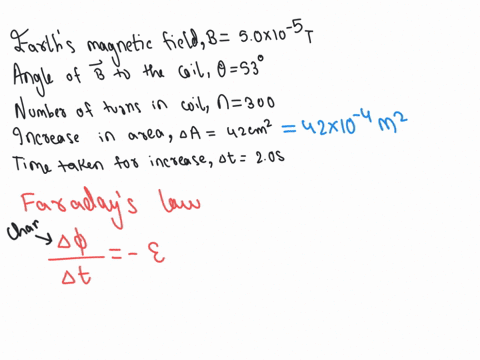 Earth's magnetic field, B = 5.0×10⁻⁵ T
Angle of B⃗ to the coil, θ = 53°
Number of turns in coil, n = 300
Increase in area, ΔA = 42cm² = 42×10⁻⁴ m²
Time taken for increase, Δt = 2.0s
Faraday's law
char
Δϕ/Δt = - ε